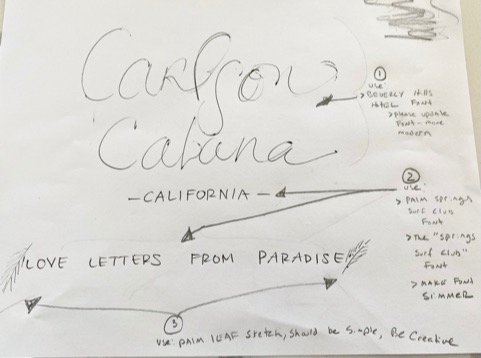 Carlson
Cabana
- CALIFORNIA -
LOVE LETTERS FROM PARADISE
1
USE:
> BEVERLY Hills
HOTEL FONT
> please update
FONT - more
modern
2
USE:
> PALM SPRINGS
SURF CLUB
FONT
> The "SPRINGS
SURF CLUB"
FONT
> MAKE FONT
SLIMMER
3
USE: PALM LEAF SKETCH, Should be Simple, Be Creative